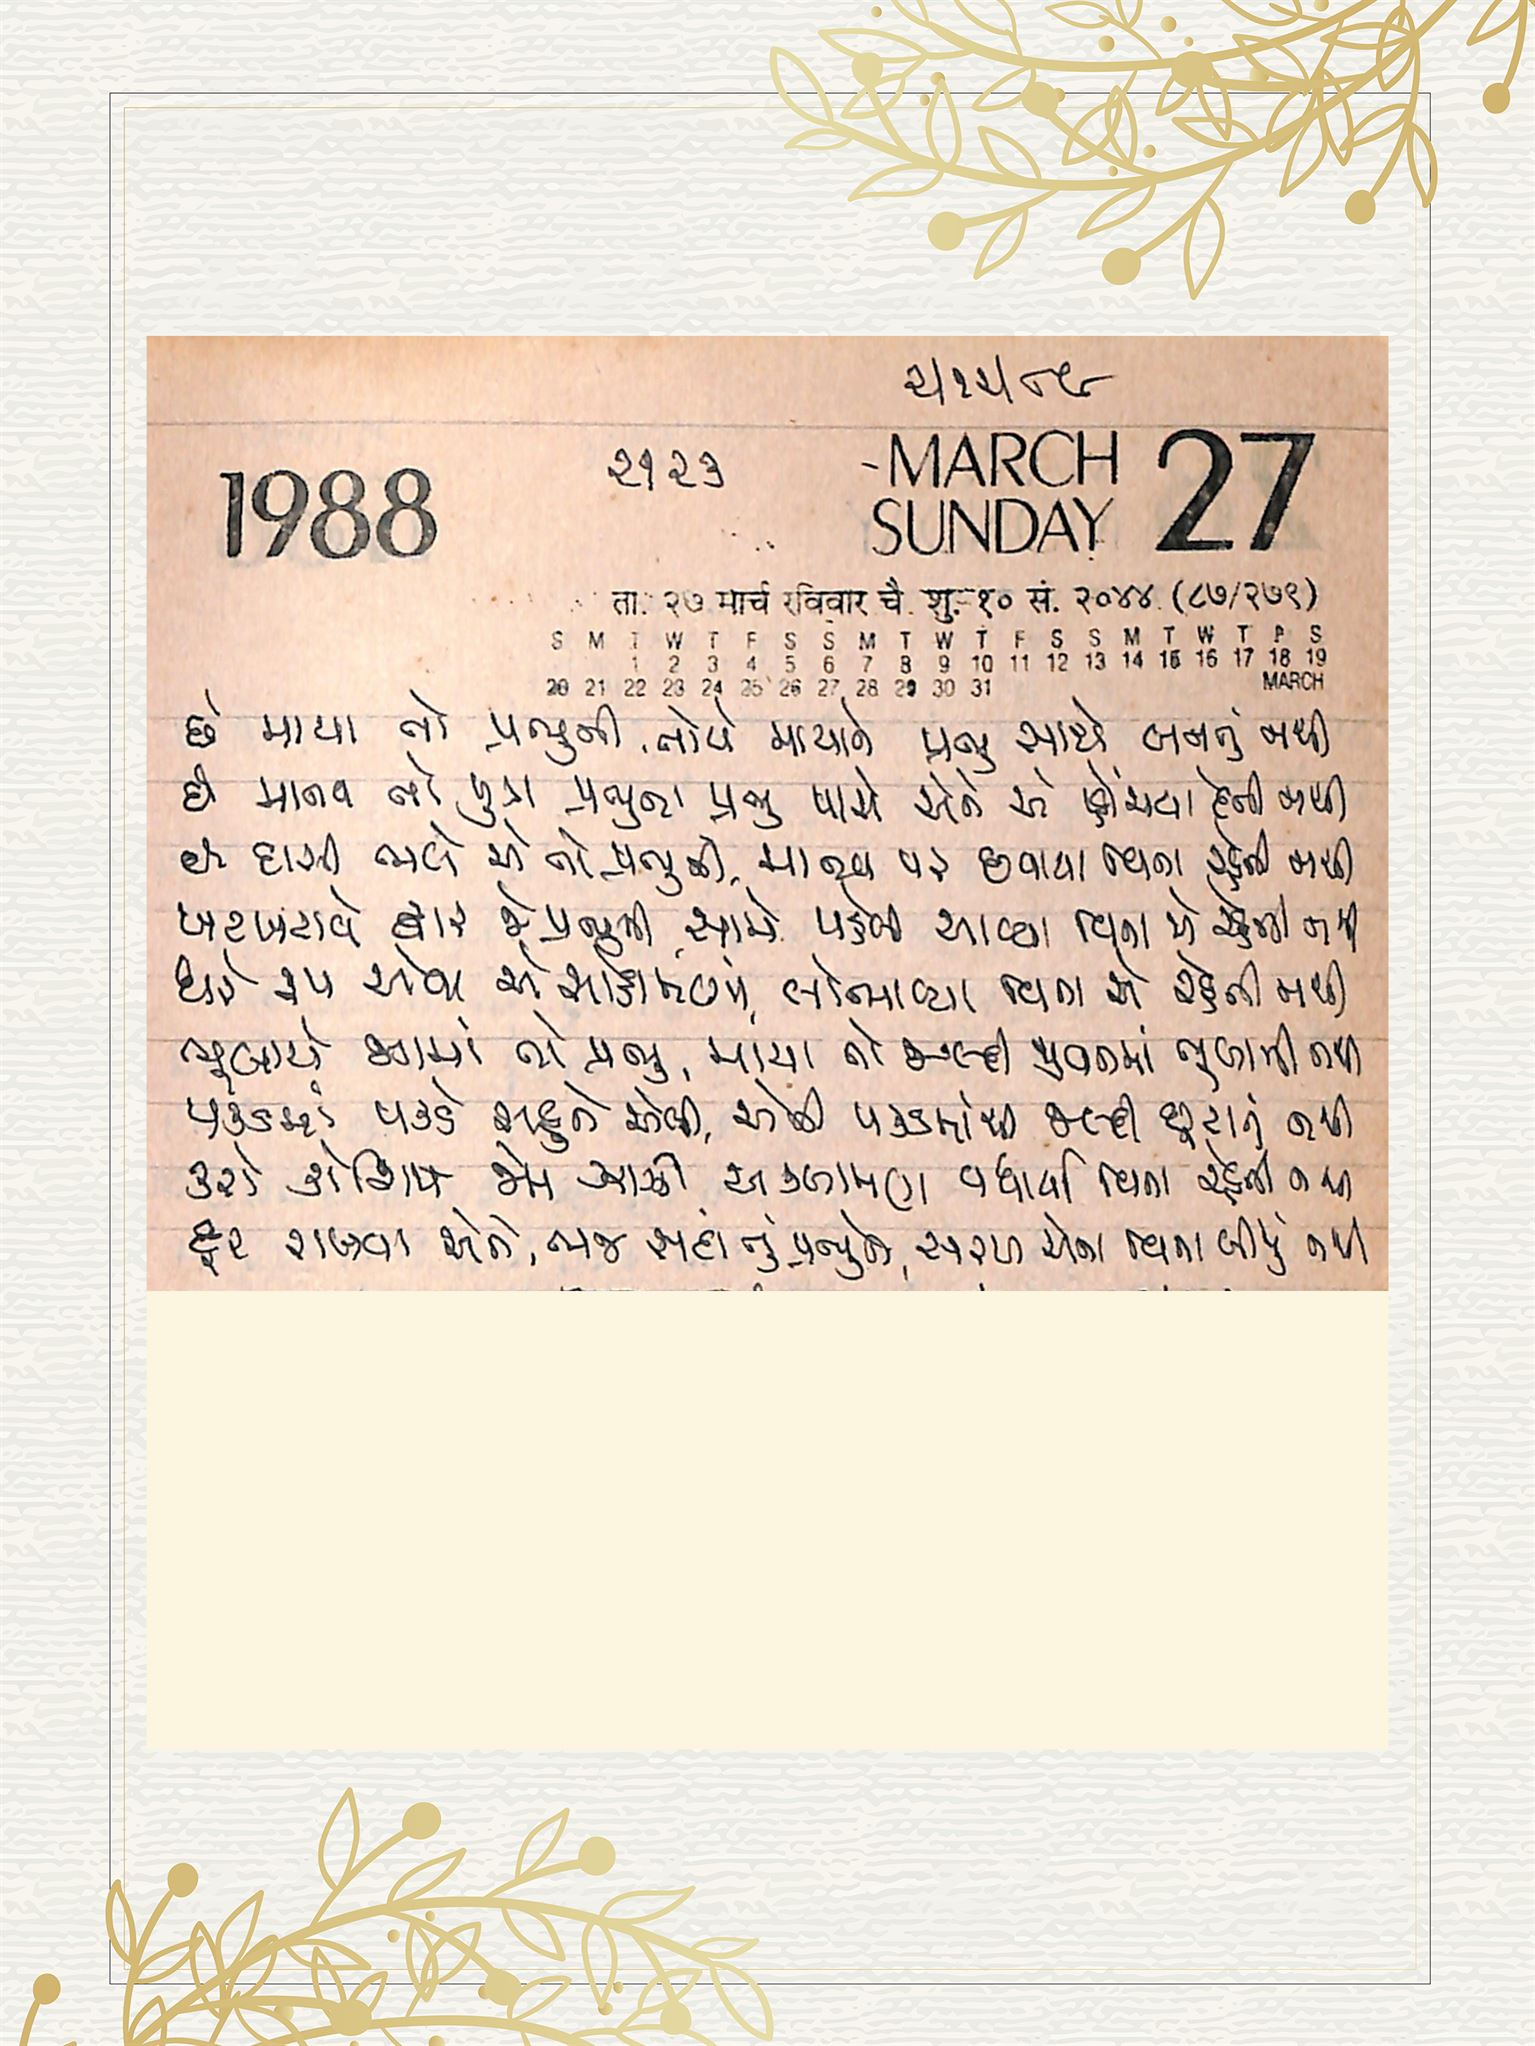 ૨/૧૨/૮૯
1988
૨૧૨૩
-MARCH 27
SUNDAY
ता. २७ मार्च रविवार चै. शु.-१० सं. २०४४ (८७/२७९)
S M T W T F S S M T W T F S S M T W T F S
1 2 3 4 5 6 7 8 9 10 11 12 13 14 15 16 17 18 19
20 21 22 23 24 25 26 27 28 29 30 31 MARCH
છે માયા તો પ્રભુની, તોયે માયાને પ્રભુ સાથે બનતું નથી
છે માનવ તો પુત્ર પ્રભુના પ્રભુ પાસે એને એ પ્હોંચવા દેતી નથી
છે દાસી ભલે એ તો પ્રભુની, માનવ પર છવાયા વિના રહેતી નથી
ખટખટાવે દ્વાર જે પ્રભુની સામે પહેલી આવ્યા વિના એ રહેતી નથી
ધરે રૂપ એવા એ સોહામણાં, લોભાવ્યા વિના એ રહેતી નથી
ભૂલાયે આમાં તો પ્રભુ, માયા તો જલ્દી ભુલાતી નથી
પકડમાં પકડે સહુને એવી, એની પકડમાંથી જલ્દી છૂટાતું નથી
કરો કોશિષ જેમ ઝાઝી અકળામણ વધાર્યા વિના રહેતી નથી
દૂર રાખવા એને, ભજ સદા તું પ્રભુને, શરણ એના વિના બીજું નથી